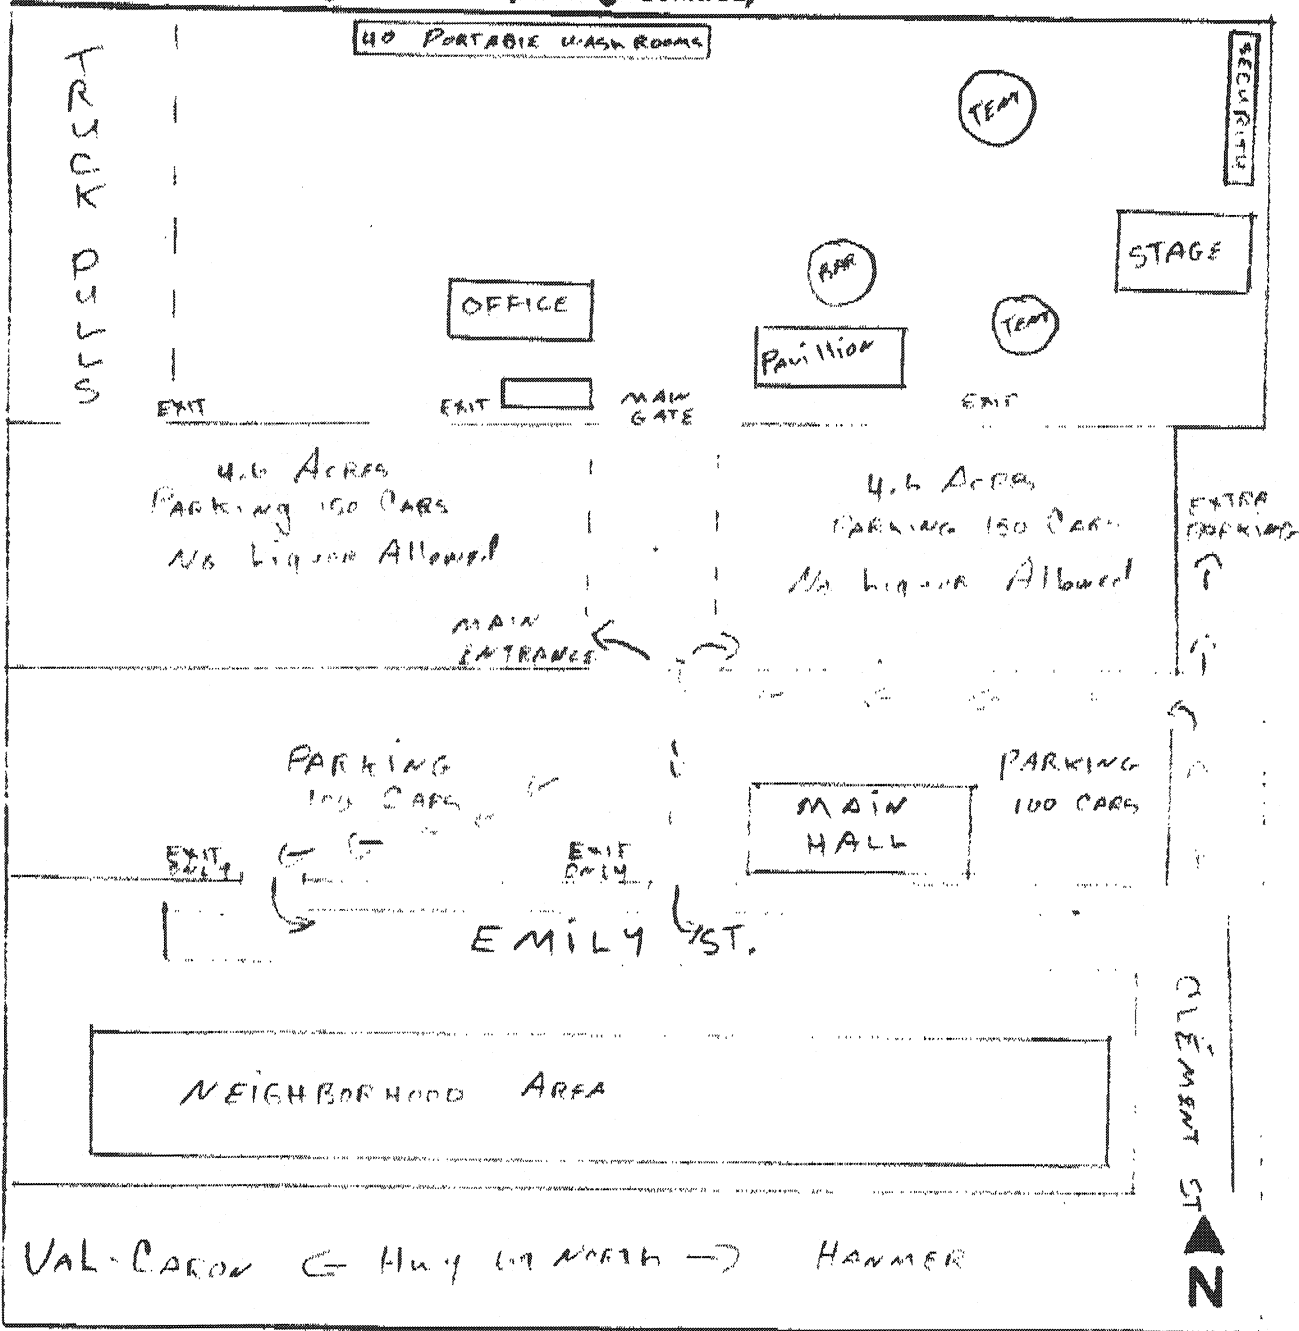 40 PORTABLE WASH ROOMS
SECURITY
TENT
TRUCK PULLS
STAGE
BAR
OFFICE
TENT
Pavillion
EXIT
EXIT
MAIN
GATE
EXIT
4.6 ACRES
PARKING 150 CARS
No Liquor Allowed
4.6 ACRES
PARKING 150 CARS
No Liquor Allowed
EXTRA
PARKING
MAIN
ENTRANCE
PARKING
100 CARS
MAIN
HALL
PARKING
100 CARS
EXIT
ONLY
EXIT
ONLY
EMILY ST.
CLÉMENT ST
NEIGHBORHOOD AREA
VAL-CARON ← Hwy 69 NORTH → HANMER
N